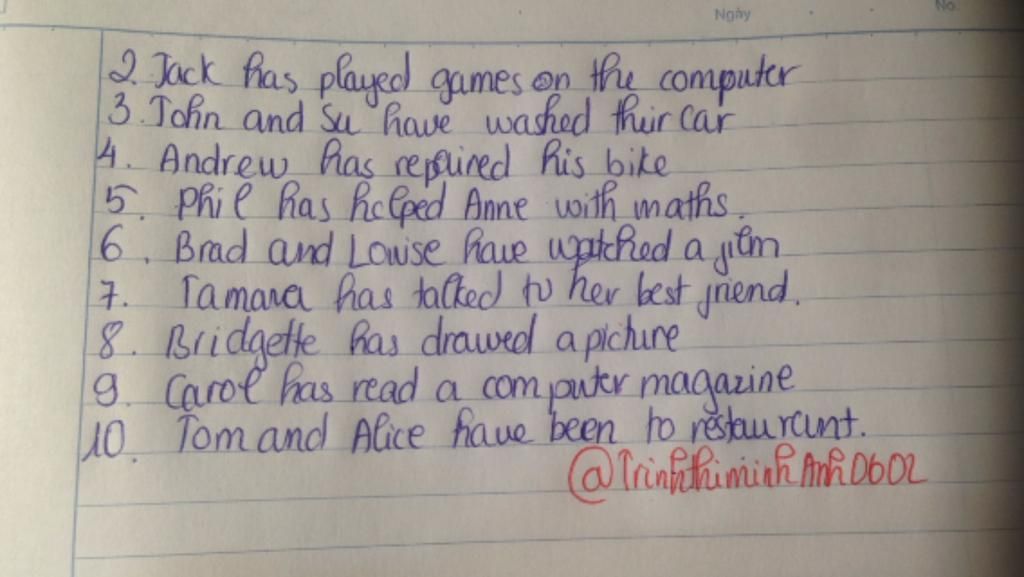 Ngày
No.
2. Jack has played games on the computer
3. John and Su have washed their car
4. Andrew has repaired his bike
5. Phil has helped Anne with maths.
6. Brad and Lowise have watched a film
7. Tamara has talked to her best friend.
8. Bridgette has drawed a picture
9. Carol has read a computer magazine
10. Tom and Alice have been to restaurant.
@TrinhthiminhAnh0602